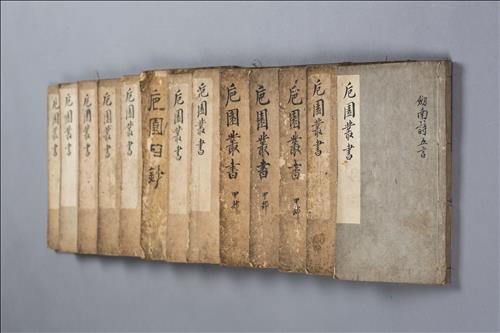 釰南詩五言
巵園叢書
巵園叢書
巵園叢書
甲
巵園叢書
甲
巵園叢書
甲
巵園叢書
巵園叢書
巵園鈔
巵園叢書
巵園叢書
巵園叢書
巵園叢書
巵園叢書